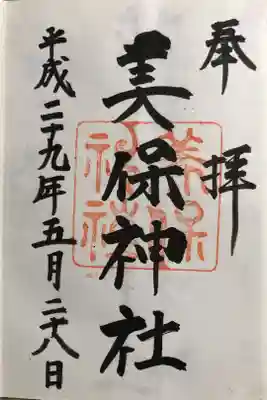 奉拝
美保神社
美保
神社
平成二十九年五月二十八日